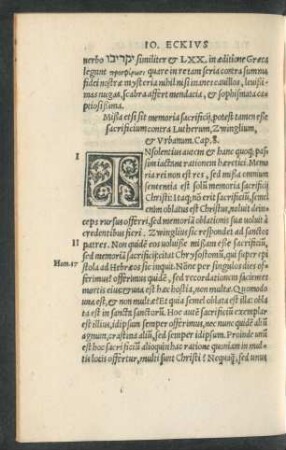 IO. ECKIVS
verbo יקריבו similiter & LXX. in æditione Græca
legunt quare in re tam seria contra summa
fidei nostræ mysteria nihil nisi inanes cauillos, leuissi
mas nugas, scabra affert mendacia, & sophismata ca
ptiosissima.
Missa etsi sit memoria sacrificij, potest tamen esse
sacrificium contra Lutherum, Zwinglium,
& Vrbanum. Cap. 8.
I
INsolescit autem & hanc quoq; pas
sim iactant rationem hæretici. Memo
ria rei non est res, sed missa omnium
sententia est solũ memoria sacrificij
Christi: Itaq; nõ erit sacrificiũ, semel
enim oblatus est Christus, noluit dein
ceps rursus offerri, sed memoriã oblationis suæ voluit à
credentibus fieri. Zwinglius sic respondet ad sanctos
II
patres. Non quidẽ eos voluisse missam esse sacrificiũ,
sed memoriã sacrificij citat Chrysostomũ, qui super epi
Hom. 17
stola ad Hebræos sic inquit. Nõne per singulos dies of-
ferimus? offerimus quidẽ, sed recordationem facientes
mortis eius & vna est hæc hostia, non multæ. Quomodo
vna est, & non multæ? Et quia semel oblata est illa: obla
ta est in sancta sanctorũ. Hoc autẽ sacrificiũ exemplar
est illius, idipsum semper offerimus, nec nunc quidẽ aliũ
agnum, crastina aliũ, sed semper idipsum. Proinde vnum
est hoc sacrificiũ alioquin hac ratione quoniam in mul
tis locis offertur, multi sunt Christi? Nequaq̃, sed vnus